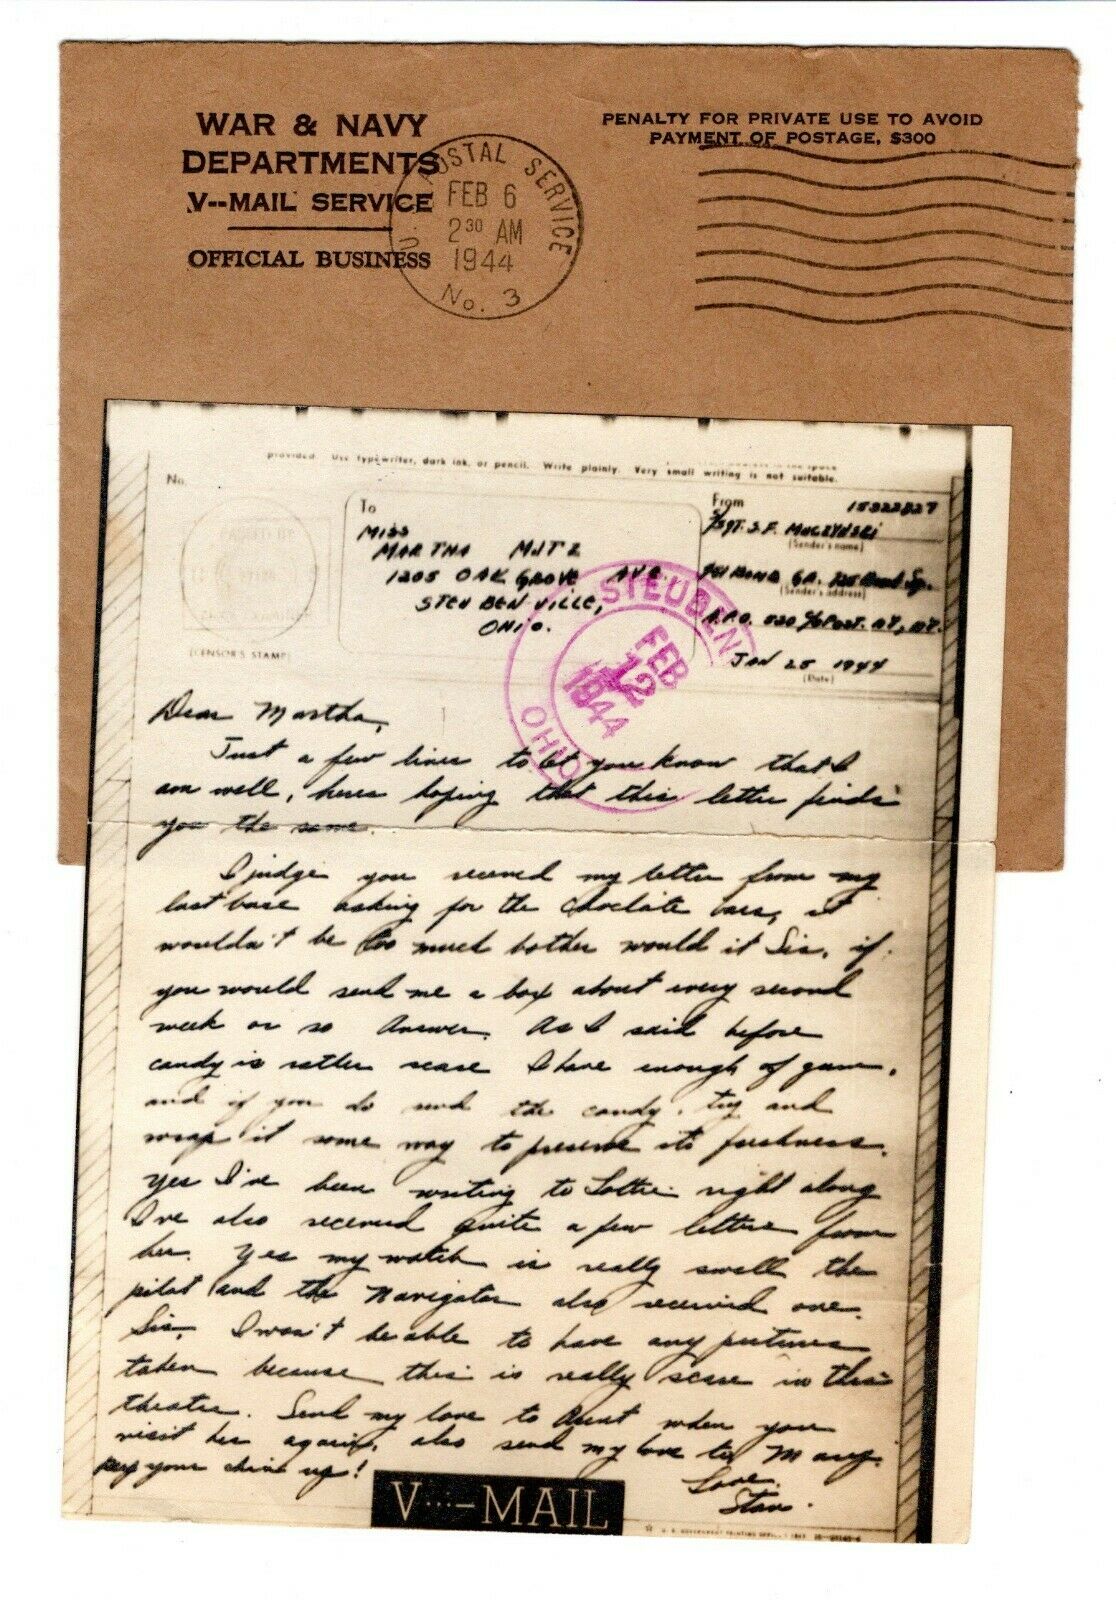 WAR & NAVY
DEPARTMENTS
V--MAIL SERVICE
OFFICIAL BUSINESS
U. S. POSTAL SERVICE
FEB 6
2 30 AM
1944
No. 3
PENALTY FOR PRIVATE USE TO AVOID
PAYMENT OF POSTAGE, $300
provided. Use typewriter, dark ink, or pencil. Write plainly. Very small writing is not suitable.
No.
(CENSOR'S STAMP)
To
MISS
MARTHA MUTZ
1205 OAK GROVE AVE.
STEUBENVILLE,
OHIO.
From 15322827
S/SGT. S.F. MUCZYNSKI
(Sender's name)
451 BOMB GR. 725 Bomb Sq.
(Sender's address)
A.P.O. 520 c/o Post. NY, NY.
JAN 25 1944
(Date)
STEUBEN
FEB
12
1944
OHIO
Dear Martha,
Just a few lines to let you know that I
am well, heres hoping that this letter finds
you the same.
I judge you received my letter from my
last base asking for the choclate bars, it
wouldn't be too much bother would it Sis, if
you would send me a box about every second
week or so Answer. As I said before
candy is rather scarse I have enough of gum,
and if you do send the candy, try and
wrap it some way to preserve its freshness.
Yes I've been writing to Lottie right along
I've also received quite a few letters from
her. Yes my watch is really swell the
pilot and the Navigator also received one.
Sis, I won't be able to have any pictures
taken because this is really scarse in this
theater. Send my love to Aunt when you
visit her again, also send my love to Mary.
Keep your chin up!
Love
Stan.
V···-MAIL
☆ U. S. GOVERNMENT PRINTING OFFICE